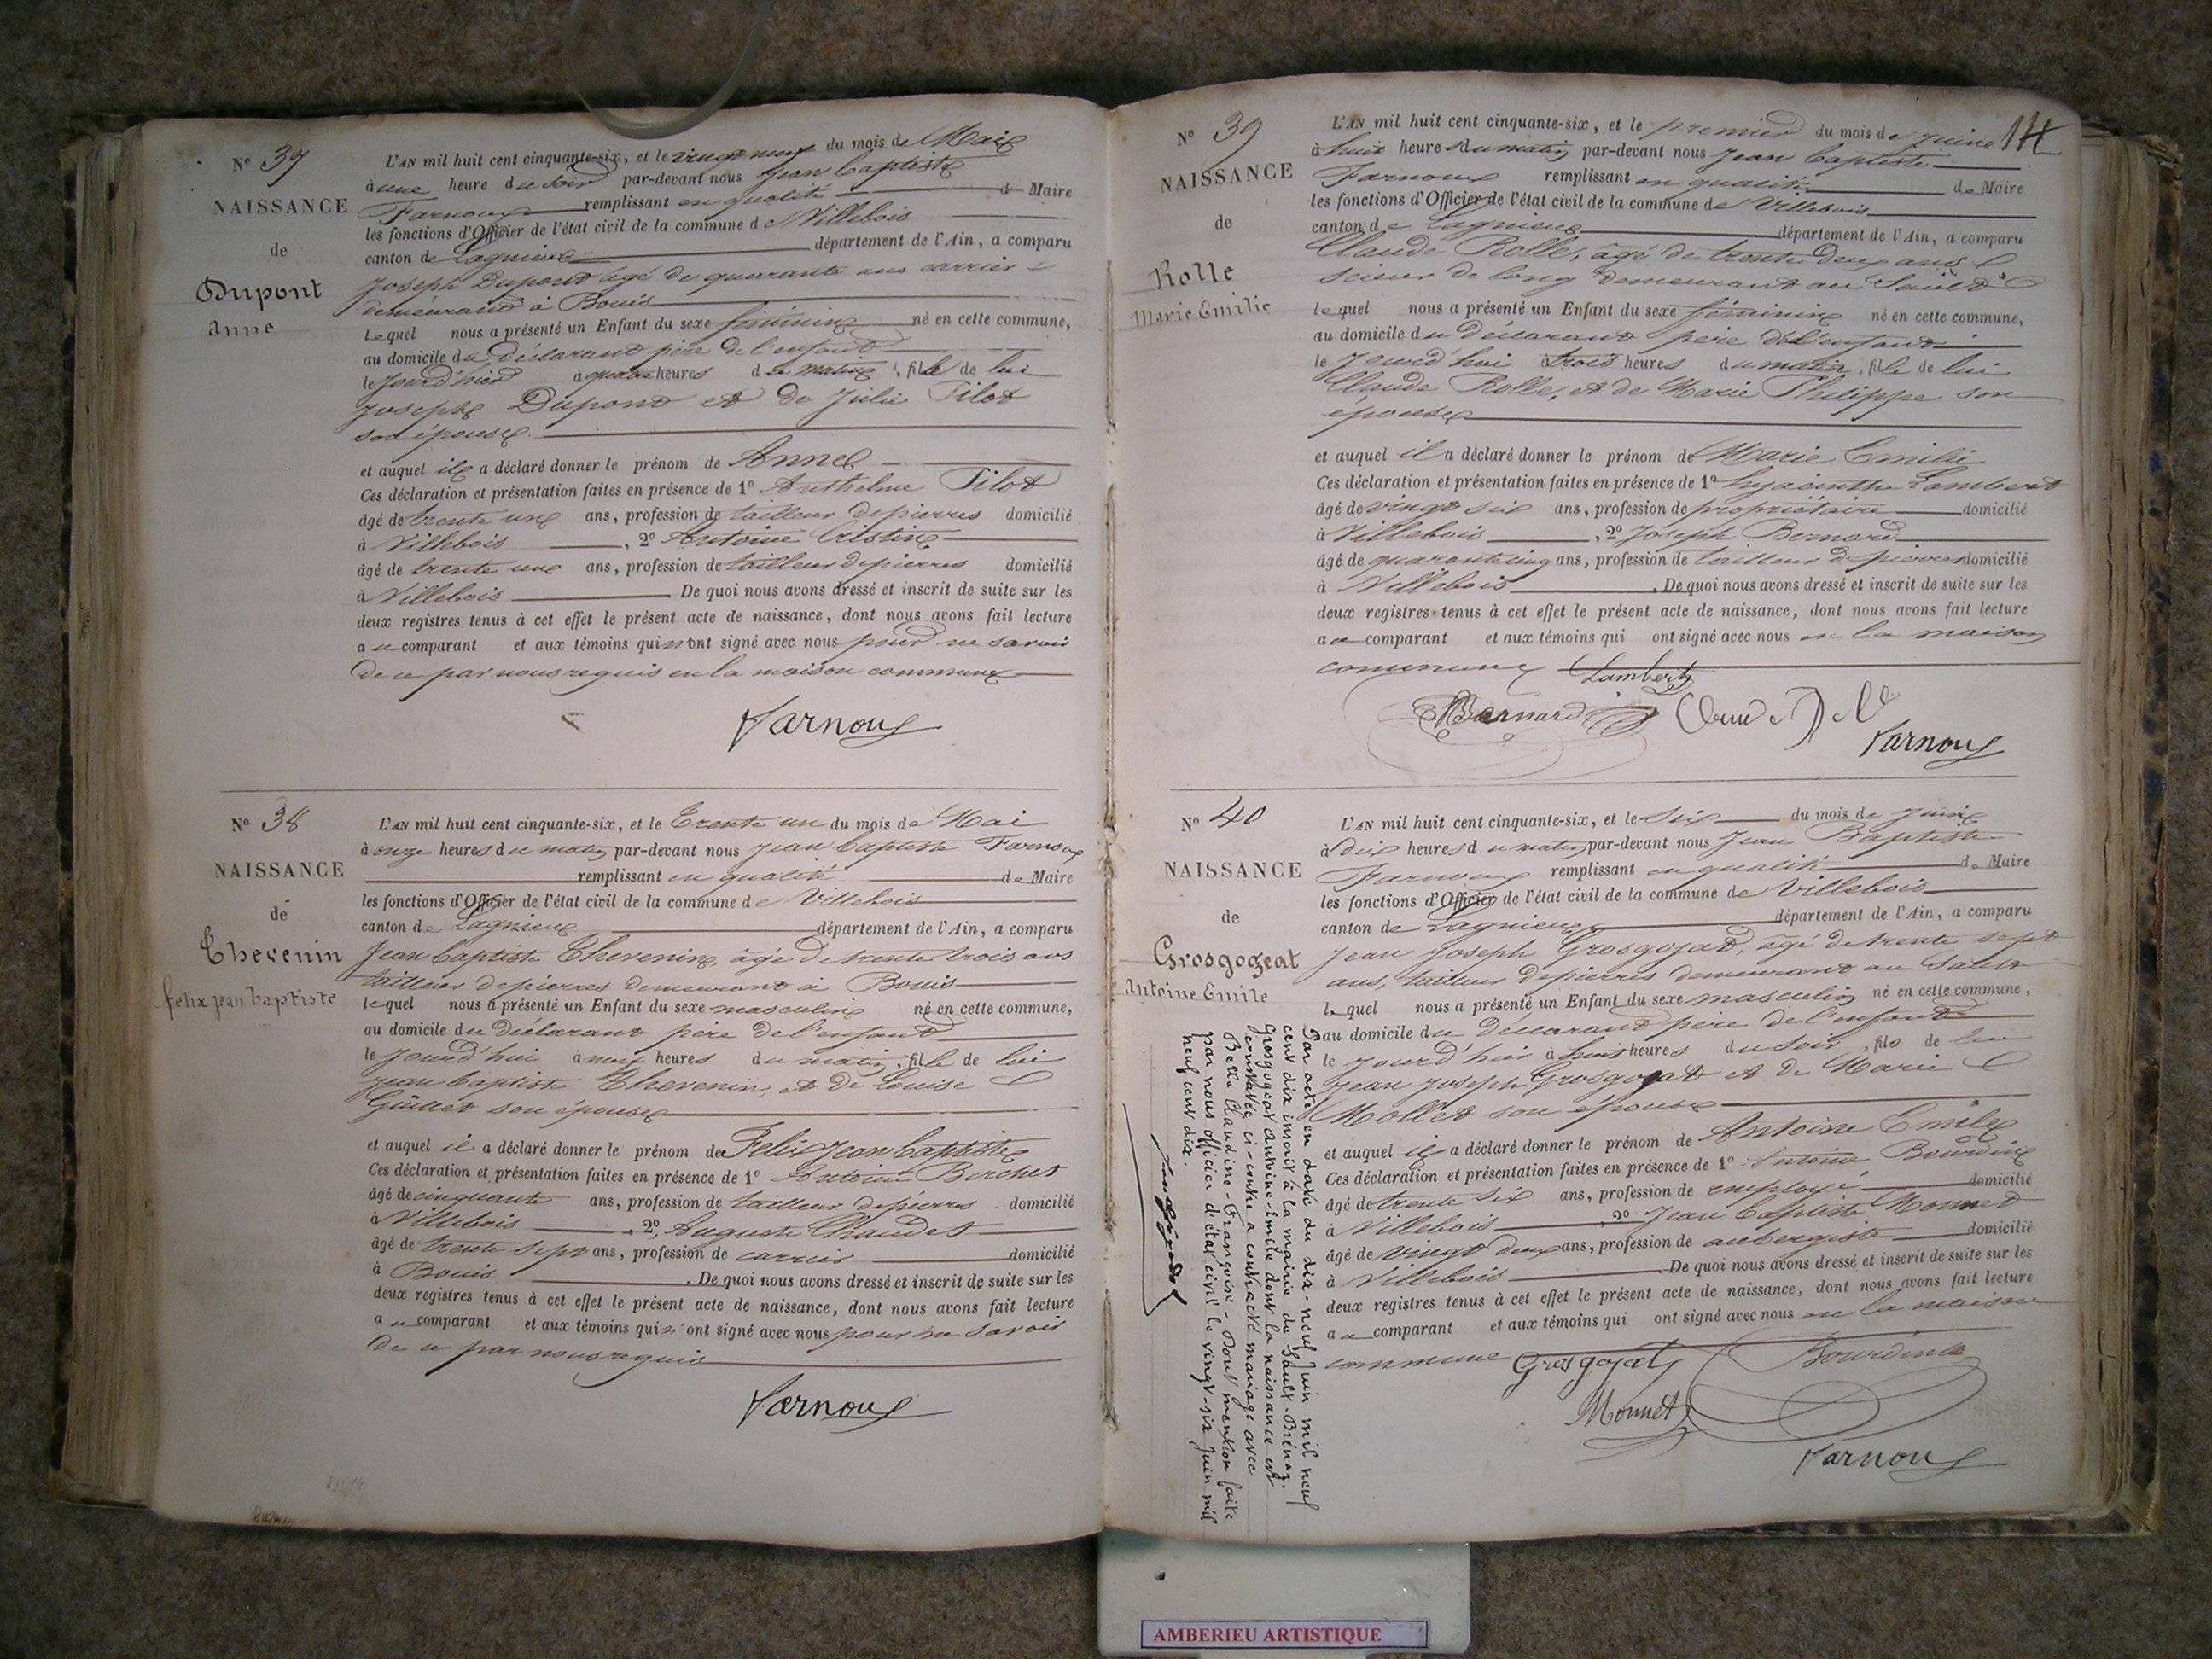 N° 37
NAISSANCE
de
Dupont
anne
L'AN mil huit cent cinquante-six, et le vingt neuf du mois de Mai
à une heure du soir par-devant nous Jean Baptiste
Farnoux remplissant en qualité de Maire
les fonctions d'Officier de l'état civil de la commune de Villebois
canton de Lagnieu département de l'Ain, a comparu
Joseph Dupont âgé de quarante ans carrier
demeurant à Bouis
Lequel nous a présenté un Enfant du sexe féminin né en cette commune,
au domicile du déclarant père de l'enfant
le jourd'hier à quatre heures du matin, fille de lui
Joseph Dupont et de Julie Pilot
son épouse
et auquel il a déclaré donner le prénom de Anne
Ces déclaration et présentation faites en présence de 1° Anthelme Pilot
âgé de trente un ans, profession de tailleur de pierres domicilié
à Villebois, 2° Antoine Cristin
âgé de trente un ans, profession de tailleur de pierres domicilié
à Villebois. De quoi nous avons dressé et inscrit de suite sur les
deux registres tenus à cet effet le présent acte de naissance, dont nous avons fait lecture
au comparant et aux témoins qui n'ont signé avec nous pour ne savoir
de ce par nous requis en la maison commune
Farnoux
N° 38
NAISSANCE
de
Thevenin
felix jean baptiste
L'AN mil huit cent cinquante-six, et le Trente un du mois de Mai
à onze heures du matin par-devant nous Jean Baptiste Farnoux
remplissant en qualité de Maire
les fonctions d'Officier de l'état civil de la commune de Villebois
canton de Lagnieu département de l'Ain, a comparu
Jean Baptiste Thevenin, âgé de trente trois ans
tailleur de pierres demeurant à Bouis
lequel nous a présenté un Enfant du sexe masculin né en cette commune,
au domicile du déclarant père de l'enfant
le jourd'hui à heures du matin, fils de lui
Jean Baptiste Thevenin, et de Louise
son épouse
et auquel il a déclaré donner le prénom de Felix Jean Baptiste
Ces déclaration et présentation faites en présence de 1° Antoine Berchet
âgé de cinquante ans, profession de tailleur de pierres domicilié
à Villebois, 2° Auguste Chaudet
âgé de trente sept ans, profession de carrier domicilié
à Bouis. De quoi nous avons dressé et inscrit de suite sur les
deux registres tenus à cet effet le présent acte de naissance, dont nous avons fait lecture
au comparant et aux témoins qui n'ont signé avec nous pour ne savoir
de ce par nous requis
Farnoux
N° 39
14
NAISSANCE
de
Rolle
Marie Emilie
L'AN mil huit cent cinquante-six, et le premier du mois de Juin
à huit heures du matin par-devant nous Jean Baptiste
Farnoux remplissant en qualité de Maire
les fonctions d'Officier de l'état civil de la commune de Villebois
canton de Lagnieu département de l'Ain, a comparu
Claude Rolle, âgé de trente deux ans
scieur de long demeurant au Sault
lequel nous a présenté un Enfant du sexe féminin né en cette commune,
au domicile du déclarant père de l'enfant
le jourd'hui à trois heures du matin, fille de lui
Claude Rolle, et de Marie Philippe son
épouse
et auquel il a déclaré donner le prénom de Marie Emilie
Ces déclaration et présentation faites en présence de 1° hyacinthe Lambert
âgé de vingt six ans, profession de propriétaire domicilié
à Villebois, 2° Joseph Bernard
âgé de quarante cinq ans, profession de tailleur de pierres domicilié
à Villebois. De quoi nous avons dressé et inscrit de suite sur les
deux registres tenus à cet effet le présent acte de naissance, dont nous avons fait lecture
au comparant et aux témoins qui ont signé avec nous en la maison
commune Lambert
Bernard
Farnoux
N° 40
NAISSANCE
de
Grosgogeat
Antoine Emile
L'AN mil huit cent cinquante-six, et le six du mois de Juin
à dix heures du matin par-devant nous Jean Baptiste
Farnoux remplissant en qualité de Maire
les fonctions d'Officier de l'état civil de la commune de Villebois
canton de Lagnieu département de l'Ain, a comparu
Jean Joseph Grosgojat, âgé de trente sept
ans, tailleur de pierres demeurant au Sault
lequel nous a présenté un Enfant du sexe masculin né en cette commune,
au domicile du déclarant père de l'enfant
le jourd'hier à huit heures du soir, fils de lui
Jean Joseph Grosgojat et de Marie
Mollet son épouse
et auquel il a déclaré donner le prénom de Antoine Emile
Ces déclaration et présentation faites en présence de 1° Antoine Bourdin
âgé de trente six ans, profession de employé domicilié
à Villebois, 2° Jean Baptiste Monnet
âgé de vingt deux ans, profession de aubergiste domicilié
à Villebois. De quoi nous avons dressé et inscrit de suite sur les
deux registres tenus à cet effet le présent acte de naissance, dont nous avons fait lecture
au comparant et aux témoins qui ont signé avec nous en la maison
commune Grosgojat Bourdin
Monnet
Farnoux
Par acte en date du dix-neuf Juin mil neuf
cent dix inscrit à la mairie du Sault-Brénaz,
Grosgogeat Antoine-Emile dont la naissance est
constatée ci-contre a contracté mariage avec
Bette Claudine-Françoise - Dont mention faite
par nous officier d'état civil le vingt-six Juin mil
neuf cent dix.
AMBERIEU ARTISTIQUE